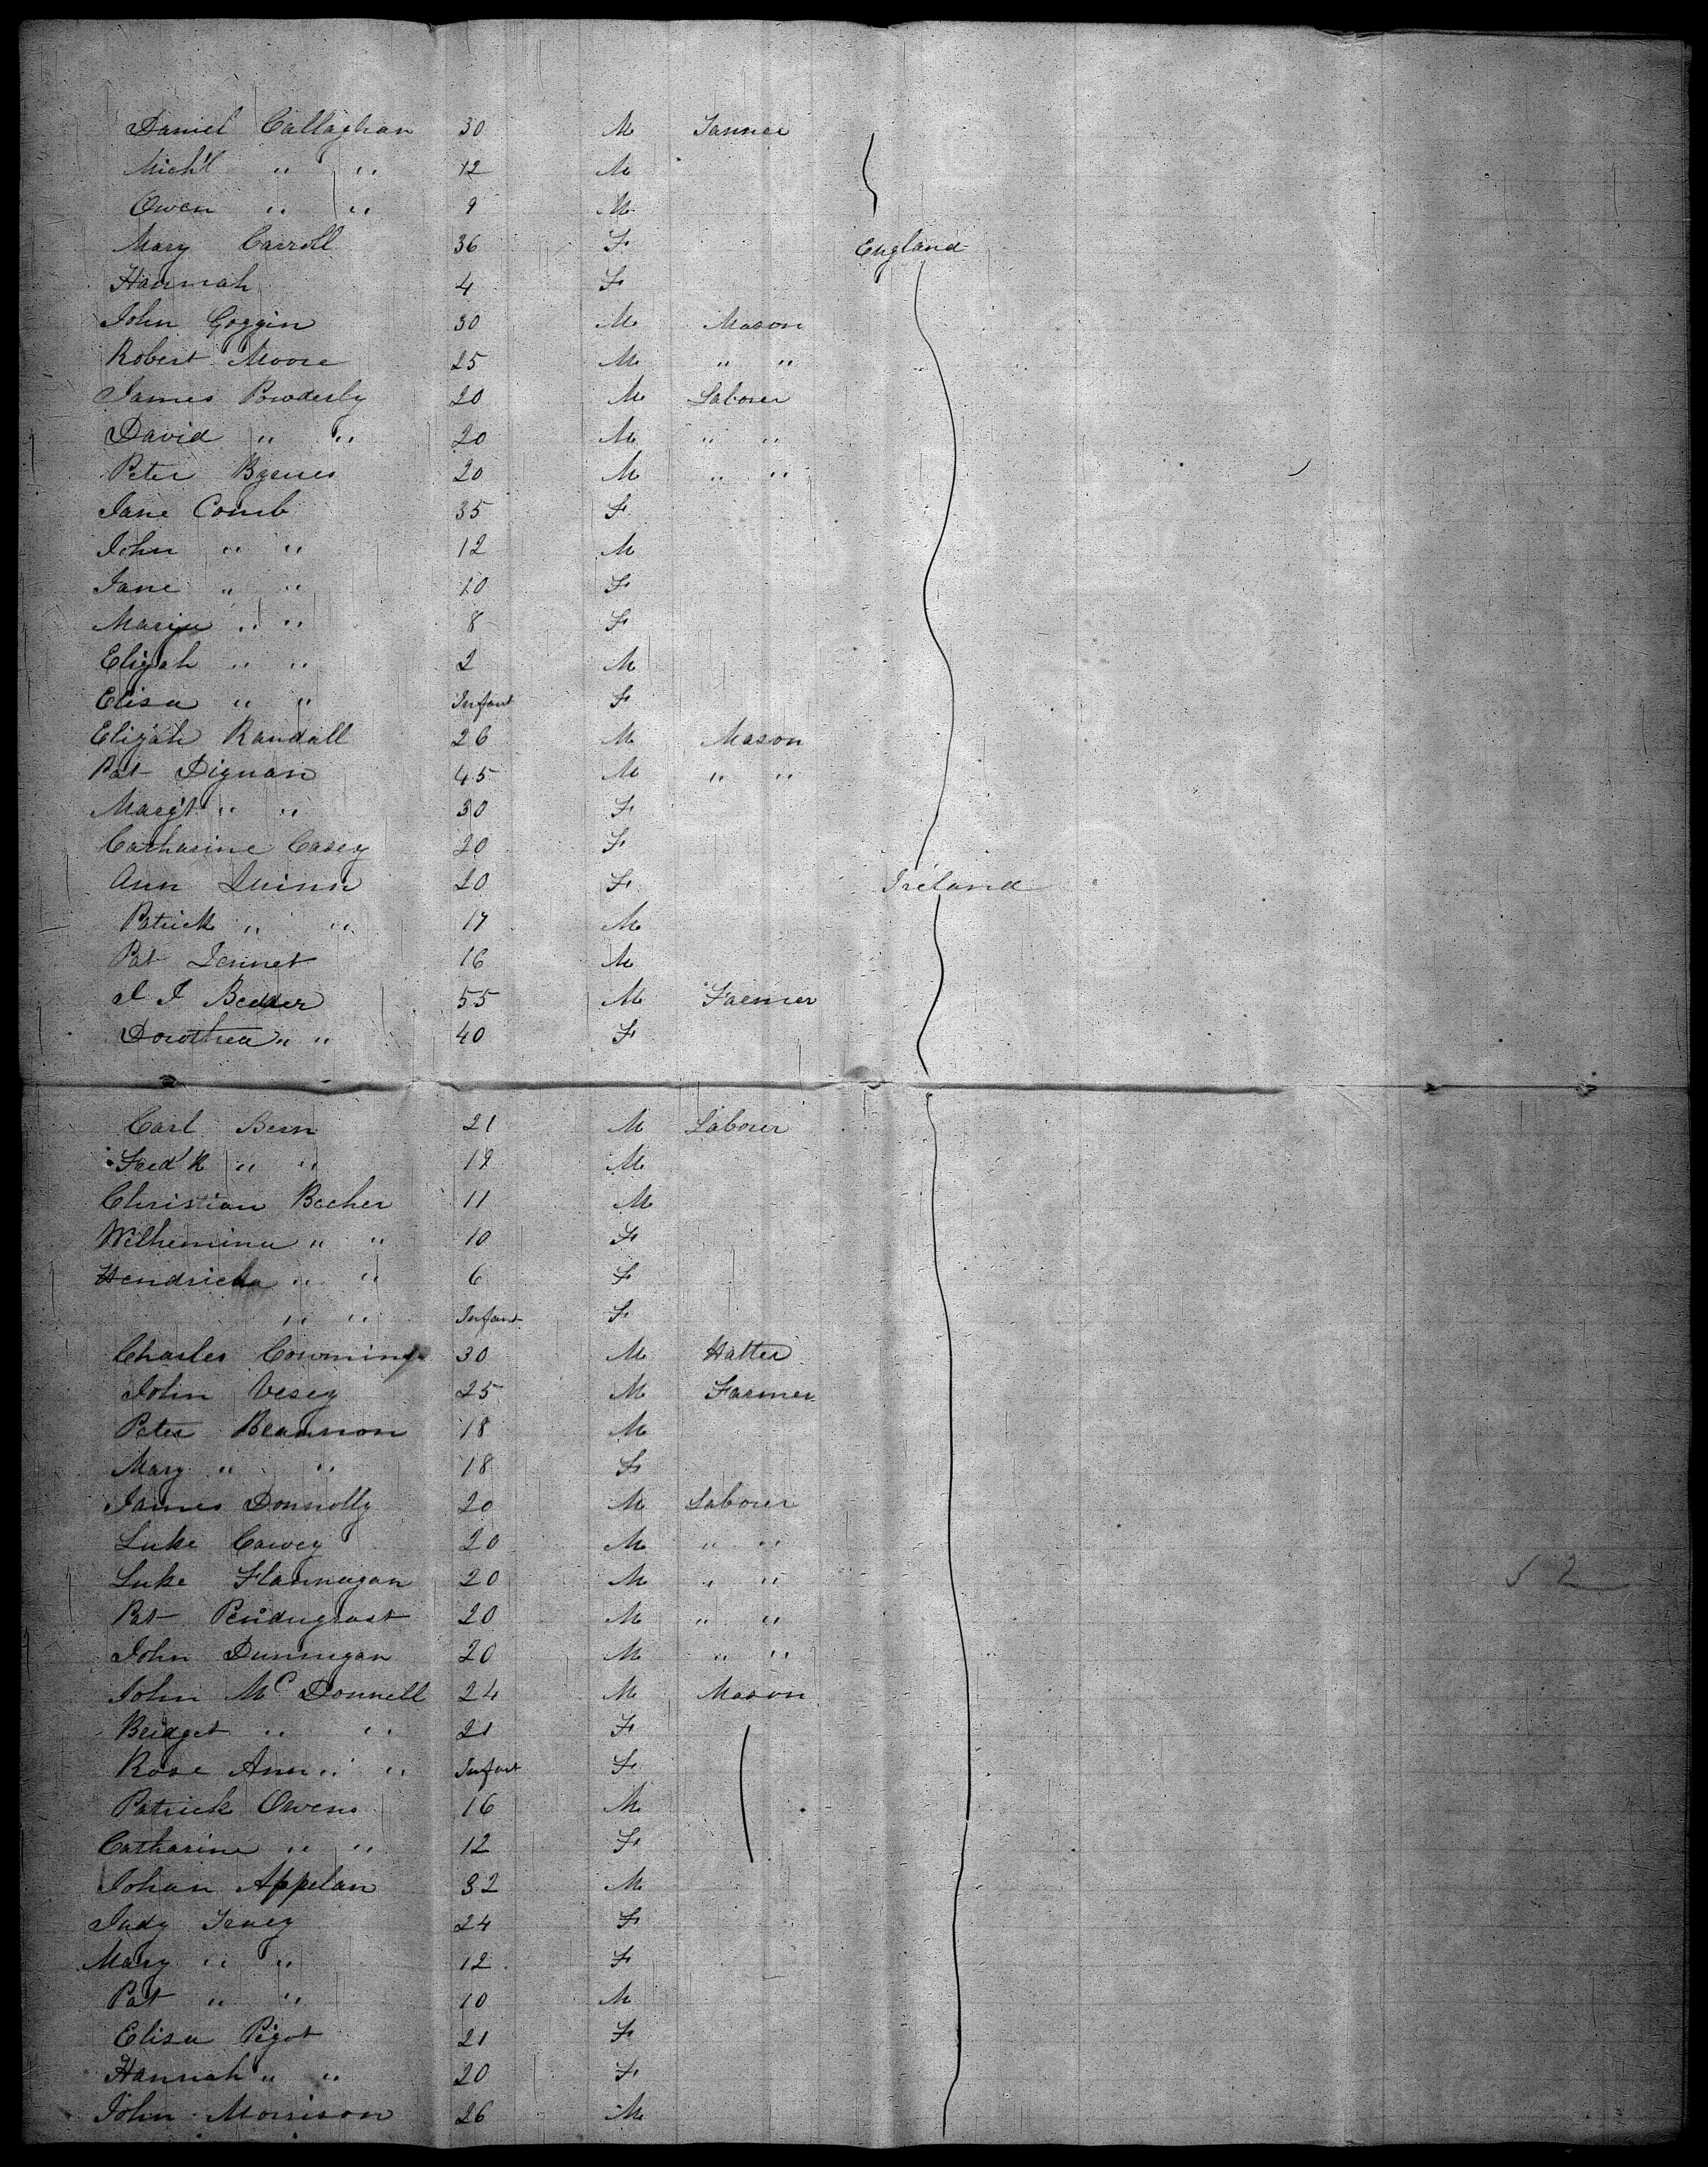 Daniel Callaghan 30 M Tanner
Mich'l " " 12 M
Owen " " 9 M
Mary Carroll 36 F England
Hannah 4 F
John Goggin 30 M Mason
Robert Moore 25 M " "
James Powderly 20 M Laborer
David " " 20 M " "
Peter Byrnes 20 M " "
Jane Comb 35 F
John " " 12 M
Jane " " 10 F
Maria " " 8 F
Elijah " " 2 M
Elisa " " Infant F
Elijah Randall 26 M Mason
Pat Dignan 45 M " "
Marg't " " 30 F
Catharine Casey 20 F
Ann Quinn 20 F Ireland
Patrick " " 17 M
Pat Jennet 16 M
J J Becker 55 M Farmer
Dorothea " " 40 F
Carl Bern 21 M Laborer
Fred'k " " 19 M
Christian Becher 11 M
Wilhemina " " 10 F
Hendricka " " 6 F
" " Infant F
Charles Cowming 30 M Hatter
John Vesey 25 M Farmer
Peter Brannon 18 M
Mary " " 18 F
James Donnolly 20 M Laborer
Luke 20 M " "
Luke Flannagan 20 M " "
Pat Pendugrast 20 M " "
John Dunnigan 20 M " "
John McDonnell 24 M Mason
Bridget " " 21 F
Rose Ann " " Infant F
Patrick Owens 16 M
Catharine " " 12 F
Johan Appelan 32 M
Judy Tracy 24 F
Mary " " 12 F
Pat " " 10 M
Elisa Pigot 21 F
Hannah " " 20 F
John Morrison 26 M